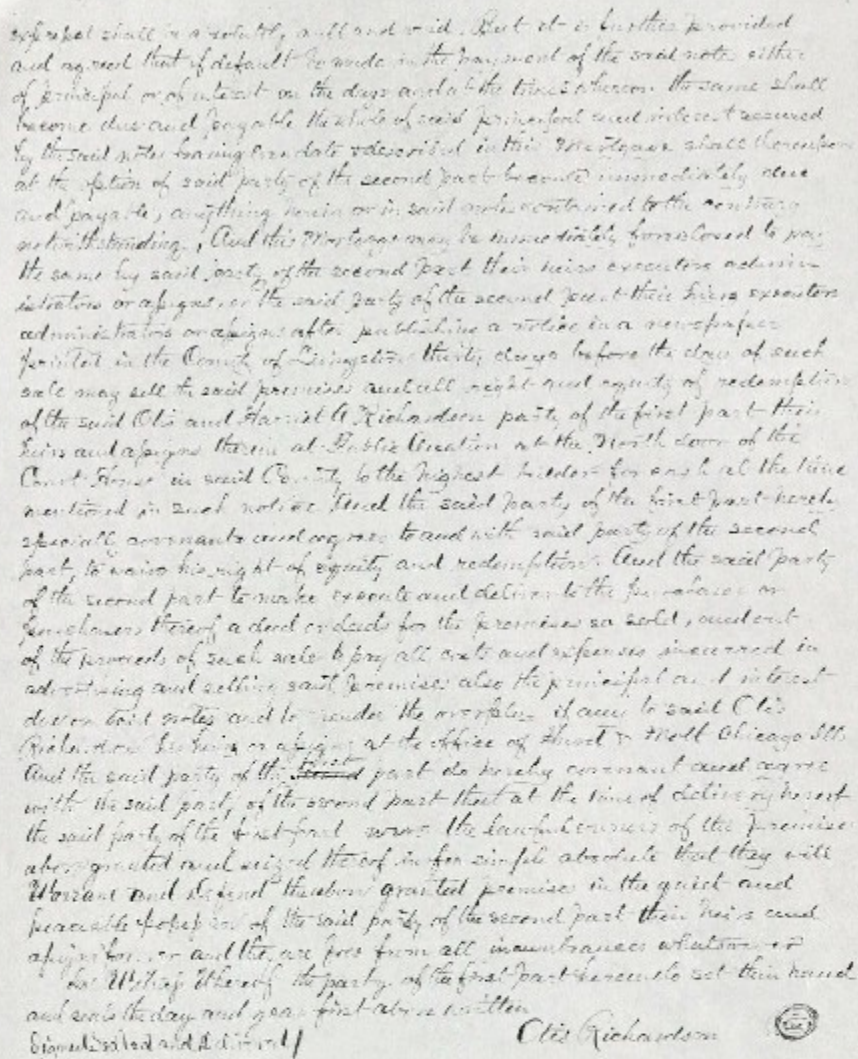 shall be absolutely null and void. But it is further provided
and agreed that if default be made in the payment of the said note either
of principal or of interest on the days and at the times whereon the same shall
become due and payable the whole of said principal and interest secured
by the said notes having even date & described in this Mortgage shall thereupon
at the option of said party of the second part become immediately due
and payable, anything herein or in said notes contained to the contrary
notwithstanding, And this Mortgage may be immediately foreclosed to pay
the same by said party of the second part their heirs executors admin-
istrators or assigns, or the said party of the second part their heirs executors
administrators or assigns after publishing a notice in a newspaper
printed in the County of Livingston thirty days before the day of such
sale may sell the said premises and all right and equity of redemption
of the said Otis and Harriet A Richardson party of the first part their
heirs and assigns therein at Public Auction at the North door of the
Court House in said County to the highest bidder for cash at the time
mentioned in such notice And the said party of the first part hereby
specially covenants and agrees to and with said party of the second
part, to waive his right of equity and redemption. And the said party
of the second part to make execute and deliver to the purchaser or
purchasers thereof a deed or deeds for the premises so sold, and out
of the proceeds of such sale to pay all costs and expenses incurred in
advertising and selling said premises also the principal and interest
due on said notes and to render the overplus if any to said Otis
Richardson his heirs or assigns at the office of & Chicago Ill
And the said party of the first part do hereby covenant and agree
with the said party of the second part that at the time of delivery hereof
the said party of the first part were the lawful owners of the premises
above granted and seized thereof in fee simple absolute that they will
Warrant and Defend the above granted premises in the quiet and
peaceable possession of the said party of the second part their heirs and
assigns forever and they are free from all incumbrances whatsoever
In Witness Whereof the party of the first part hereunto set their hand
and seals the day and year first above written
Signed Sealed and Delivered Otis Richardson